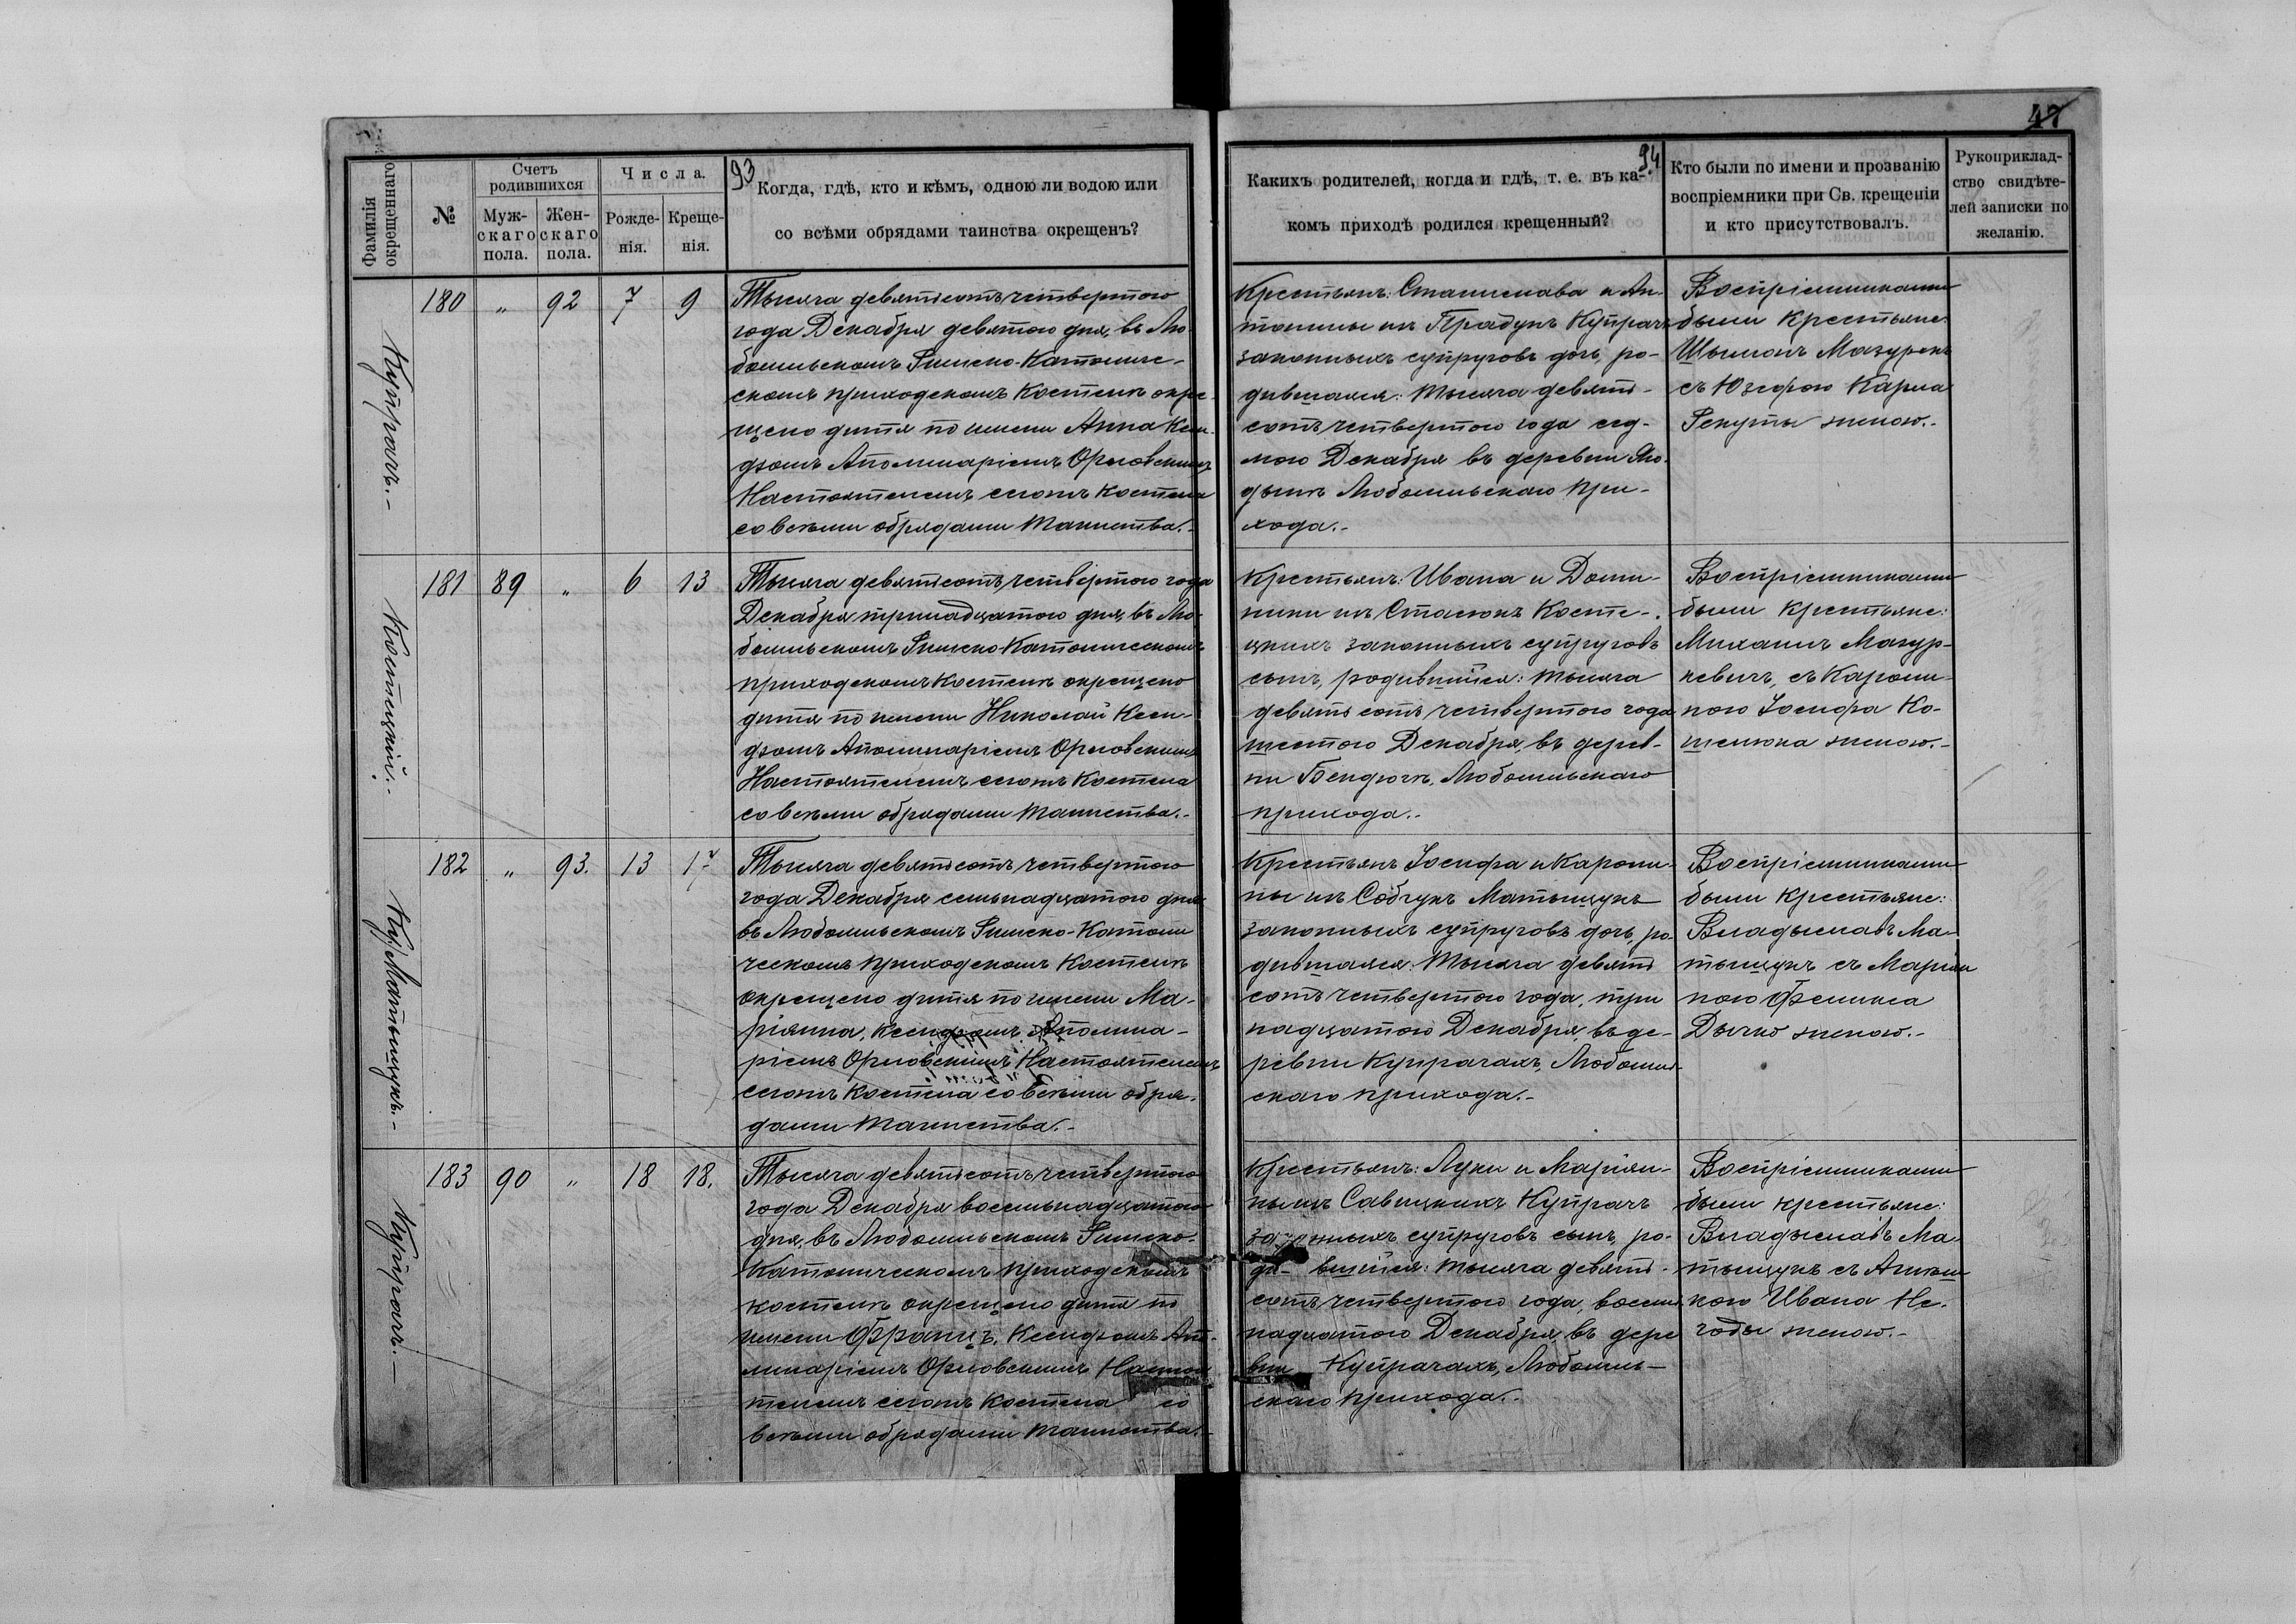 47
93
94
Фамилія
окрещеннаго
№
Счетъ
родившихся
Муж-
скаго
пола.
Жен-
скаго
пола.
Числа.
Рожде-
нія.
Креще-
нія.
Когда, гдѣ, кто и кѣмъ, одною ли водою или
со всѣми обрядами таинства окрещенъ?
Какихъ родителей, когда и гдѣ, т. е. въ ка-
комъ приходѣ родился крещенный?
Кто были по имени и прозванію
воспріемники при Св. крещеніи
и кто присутствовалъ.
Рукоприклад-
ство свидѣте-
лей записки по
желанію.
Купрачъ.-
180 " 92 7 9
Тысяча девятьсотъ четвертого
года Декабря девятого дня, въ Лю-
бомльскомъ Римско-Католиче-
скомъ приходскомъ Костелѣ окре-
щено дитя по имени Анна Ксен-
дзомъ Аполинаріемъ Орловскимъ
Настоятелемъ сего Костела
со всѣми обрядами таинства.-
Крестьянъ: Станислава и Ан-
тонины изъ Прадунъ Купрачъ
законныхъ супруговъ дочь, ро-
дившаяся: тысяча девять-
сотъ четвертого года сед-
мого Декабря въ деревни
Любомльскаго при-
хода.-
Воспріемниками
были крестьяне:
Шымонъ Мазурекъ
съ Юзефою Карла
Секуты женою.-
Костецкій.-
181 89 " 6 13
Тысяча девятьсотъ четвертого года
Декабря тринадцатого дня, въ Лю-
бомльскомъ Римско-Католическомъ
приходскомъ Костелѣ окрещено
дитя по имени Николай Ксен-
дзомъ Аполинаріемъ Орловскимъ
Настоятелемъ сего Костела
со всѣми обрядами таинства.-
Крестьянъ: Ивана и Доми-
ники изъ Стасюкъ Косте-
цкихъ законныхъ супруговъ
сынъ, родившійся: тысяча
девятьсотъ четвертого года
шестого Декабря, въ дерев-
ни Бендюгѣ, Любомльскаго
прихода.-
Воспріемниками
были крестьяне:
Михаилъ Мазур-
кевичъ, съ Кароли-
ною Іосифа Ко-
шелюка женою.-
Матыщукъ.-
182 " 93. 13 17
Тысяча девятьсотъ четвертого
года Декабря семьнадцатого дня
въ Любомльскомъ Римско-Католи
ческомъ приходскомъ Костелѣ
окрещено дитя по имени Ма-
ріянна, Ксендзомъ Аполина-
ріемъ Орловскимъ Настоятелемъ
сего Костела со всѣми обря-
дами таинства.-
Крестьянъ Іосифа и Кароли-
ны изъ Собчукъ Матыщукъ
законныхъ супруговъ дочь, ро-
дившаяся: тысяча девять
сотъ четвертого года, три
надцатого Декабря, въ де-
ревни Купрачахъ, Любомль-
скаго прихода.-
Воспріемниками
были крестьяне:
Владыславъ Ма-
тыщукъ съ Марьян
ною Феликса
Дычко женою.-
Купрачъ.-
183 90 " 18 18.
Тысяча девятьсотъ четвертого
года Декабря восемьнадцатого
дня, въ Любомльскомъ Римско-
Католическомъ приходскомъ
костелѣ окрещено дитя по
имени Францъ, Ксендзомъ Апо-
линаріемъ Орловскимъ Настоя
телемъ сего Костела со
всѣми обрядами таинства.-
Крестьянъ: Луки и Маріян-
ны изъ Савицкихъ Купрачъ
законныхъ супруговъ сынъ, ро-
ди- вшійся: тысяча девять-
сотъ четвертого года, восемь
надцатого Декабря, въ дере
вни Купрачахъ, Любомль-
скаго прихода.-
Воспріемниками
были крестьяне:
Владыславъ Ма-
тыщукъ съ
Ивана Не-
годы женою.-